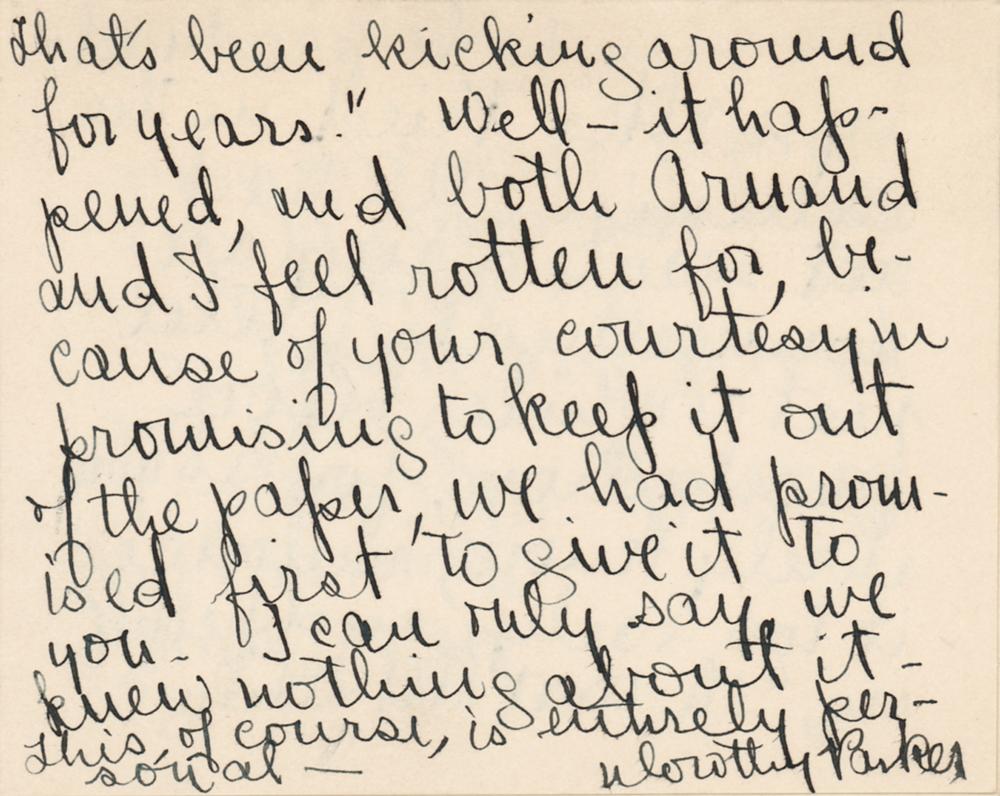 that's been kicking around
for years." Well – it hap-
pened, and both Arnaud
and I feel rotten for, be-
cause of your courtesy in
promising to keep it out
of the paper, we had prom-
ised first to give it to
you – I can only say we
knew nothing about it –
This, of course, is entirely per-
sonal —
Dorothy Parker